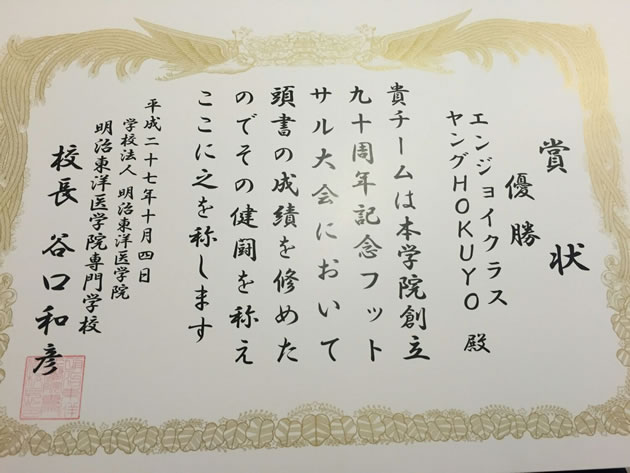 賞状
優勝
エンジョイクラス
ヤングHOKUYO 殿
貴チームは本学院創立
九十周年記念フット
サル大会において
頭書の成績を修めた
のでその健闘を称え
ここに之を称します
平成二十七年十月四日
学校法人 明治東洋医学院
明治東洋医学院専門学校
校長 谷口和彦